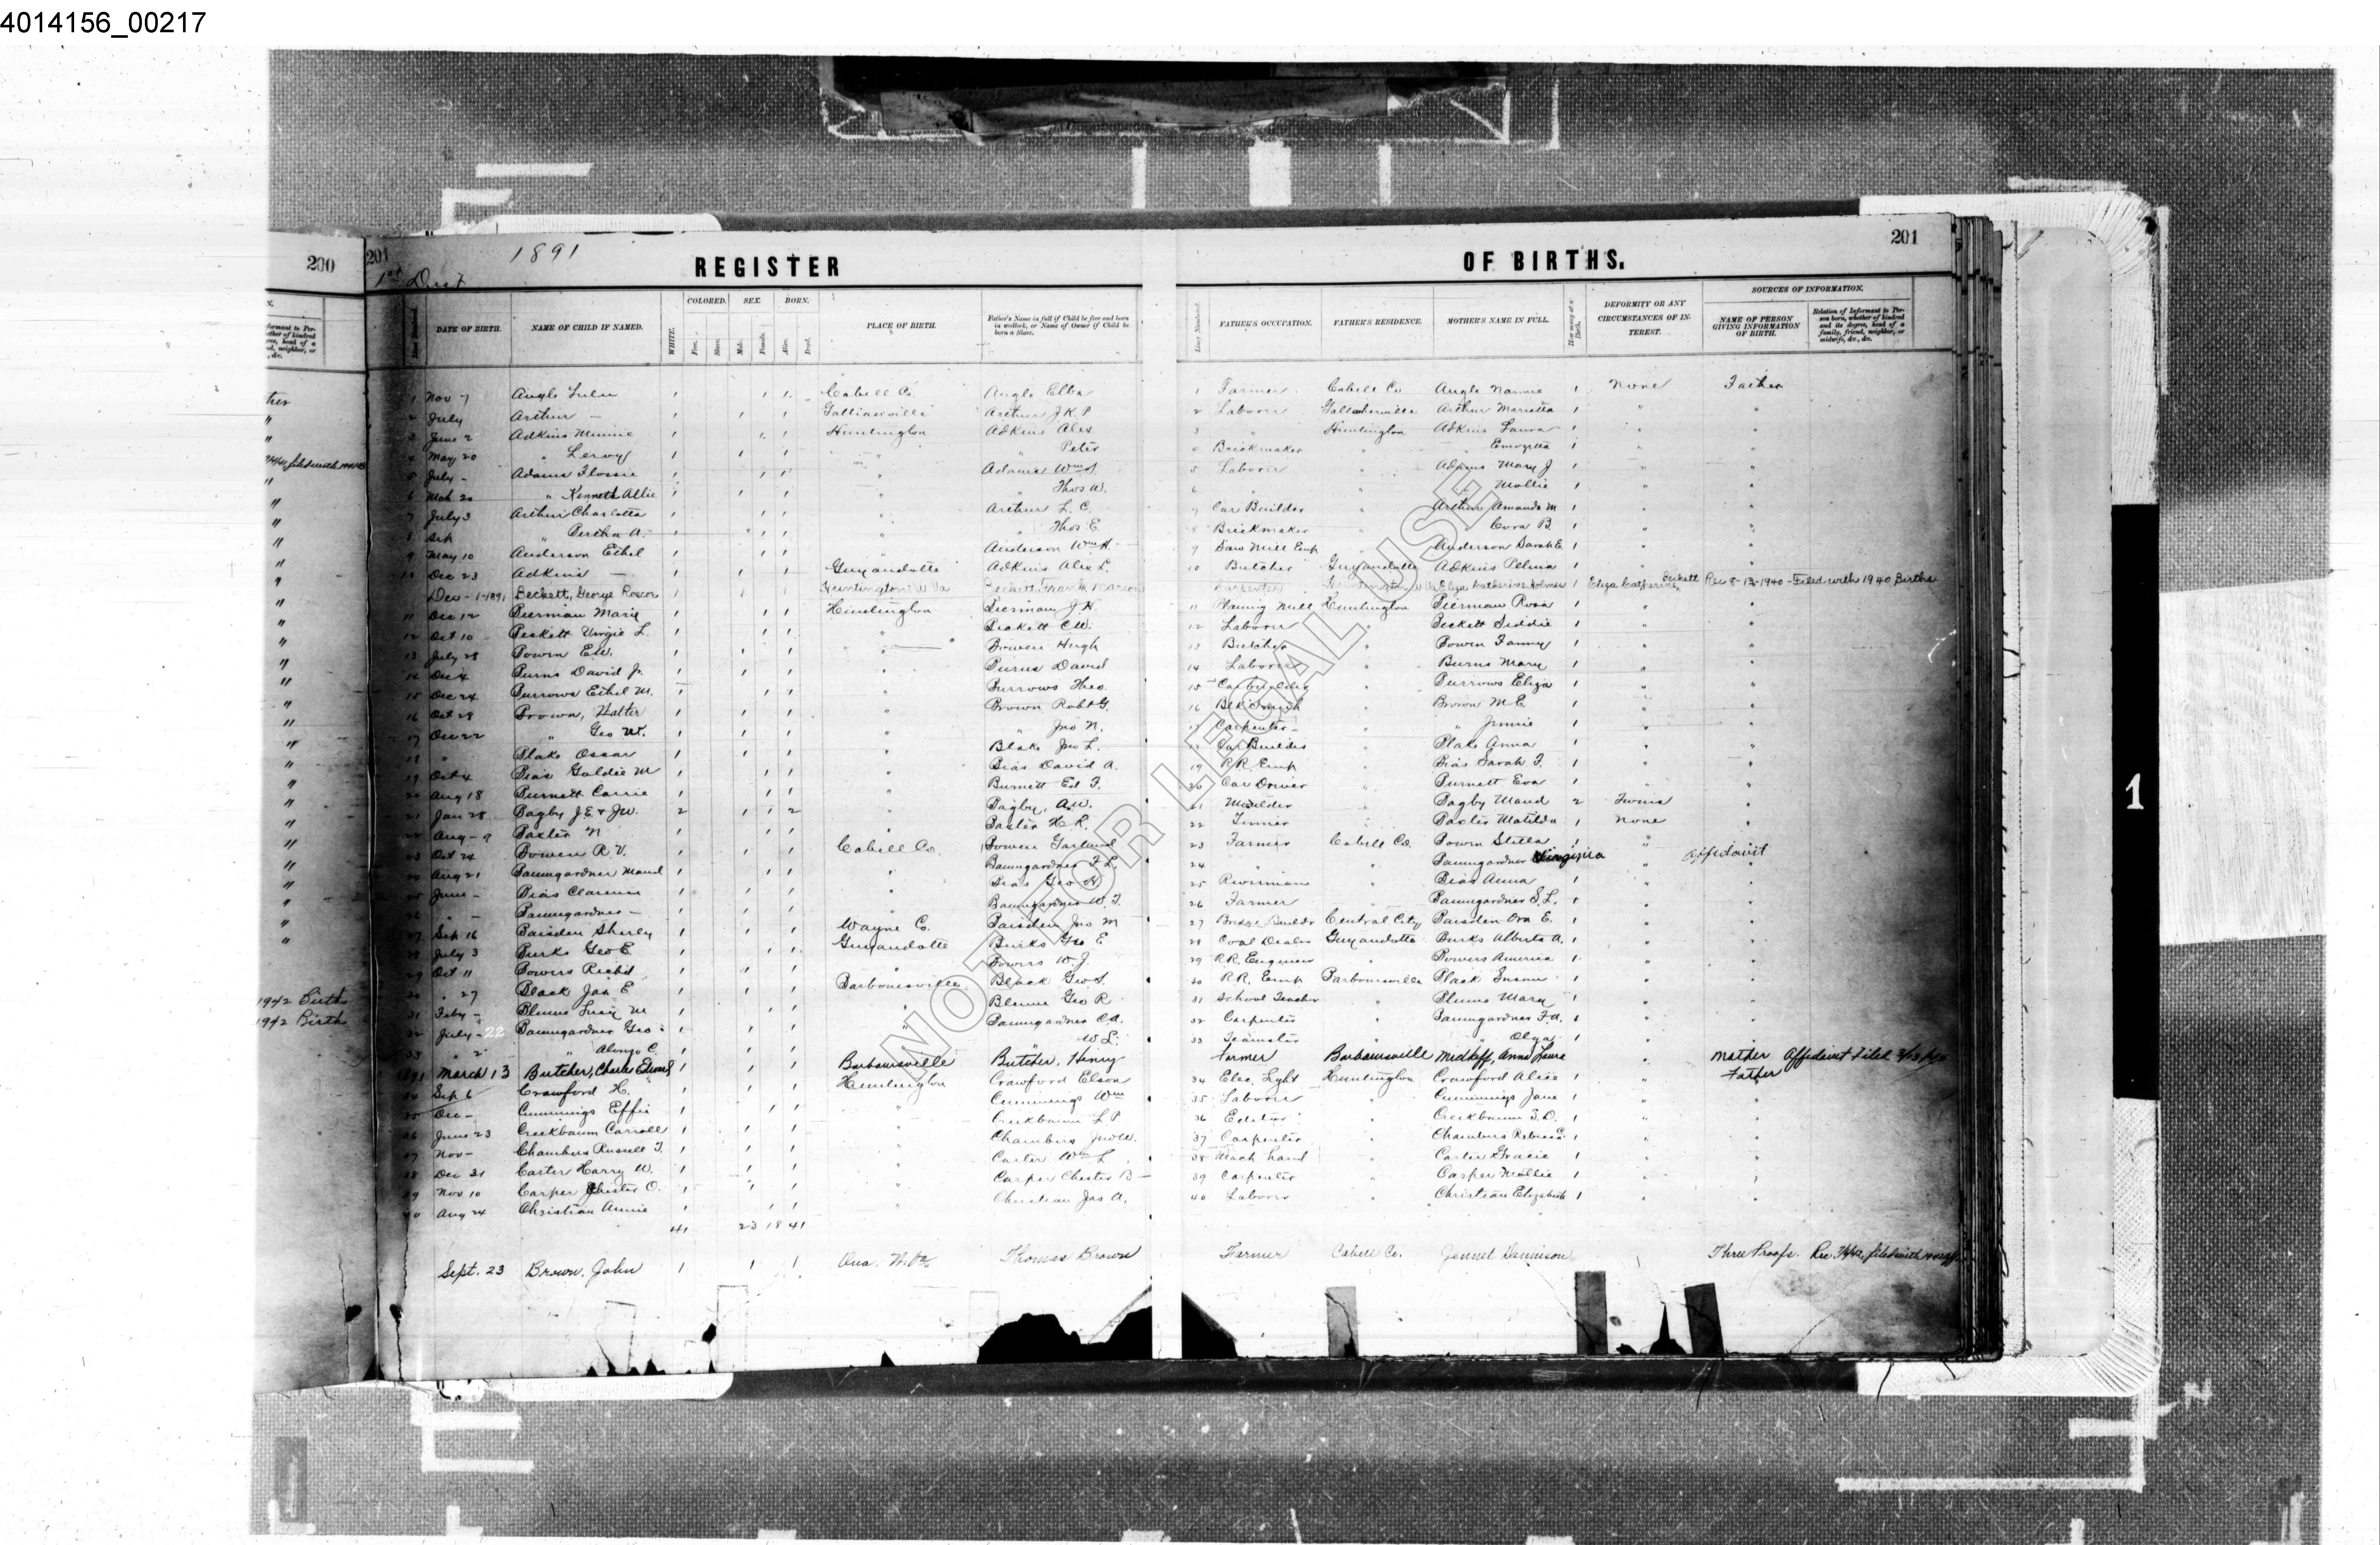 4014156_00217
200
201
1st Dist
1891
REGISTER
OF BIRTHS.
201
DATE OF BIRTH. NAME OF CHILD IF NAMED. WHITE. COLORED. Free. Slave. SEX. Male. Female. BORN. Alive. Dead. PLACE OF BIRTH. Father's Name in full if Child be free and born in wedlock, or Name of Owner if Child be born a Slave. FATHER'S OCCUPATION. FATHER'S RESIDENCE. MOTHER'S NAME IN FULL. How many at a Birth. DEFORMITY OR ANY CIRCUMSTANCES OF INTEREST. SOURCES OF INFORMATION. NAME OF PERSON GIVING INFORMATION OF BIRTH. Relation of Informant to Person born, whether of kindred and its degree, head of a family, friend, neighbor, or midwife, &c., &c.
1 Nov 7 Angle Lulu 1 1 1 Cabell Co. Angle Elba 1 Farmer Cabell Co Angle Nannie 1 None Father
2 July Arthur — 1 1 1 Arthur J.K.P 2 Laborer Arthur Marietta 1 " "
3 June 2 Adkins Minnie 1 1 1 Huntington Adkins Alex 3 " Huntington Adkins Laura 1 " "
4 May 20 " Leroy 1 1 1 " " Peter 4 Brickmaker " " 1 " "
5 July - Adams Flossie 1 1 1 " Adams Wm S 5 Laborer " Adams Mary J 1 " "
6 Mch 20 " Kenneth Allie 1 1 1 " " Thos W. 6 " " " Mollie 1 " "
7 July 3 Arthur Charlotta 1 1 1 " Arthur L. C. 7 Car Builder " Arthur Amanda M 1 " "
8 Sep " Bertha A. 1 1 1 " " Thos E. 8 Brickmaker " " Cora B. 1 " "
9 May 10 Anderson Ethel 1 1 1 " Anderson Wm H 9 Saw Mill Emp " Anderson Sarah E. 1 " "
10 Dec 23 Adkins — 1 1 1 Guyandotte Adkins Alex L. 10 Butcher Guyandotte Adkins 1 " "
Dec - 1-1891 Beckett, George Roscoe 1 1 1 Huntington W Va Beckett Frank Marion Carpenter Huntington W Va Eliza Katherine Holmes 1 Eliza Katherine Beckett Rec 8-13-1940 - Filed with 1940 Births
11 Dec 12 Bierman Marie 1 1 1 Huntington Bierman J H. 11 Planing Mill Huntington Bierman Rosa 1 " "
12 Oct 10 Beckett Virgie L. 1 1 1 " Beckett C.W. 12 Laborer " Beckett 1 " "
13 July 28 Bowen E.W. 1 1 1 " Bowen Hugh 13 Butcher " Bowen Fanny 1 " "
14 Dec 4 Burns David Jr. 1 1 1 " Burns David 14 Laborer " Burns Mary 1 " "
15 Dec 24 Burrows Ethel M. 1 1 1 " Burrows Theo. 15 Carbuilder " Burrows Eliza 1 " "
16 Oct 28 Brown, Walter 1 1 1 " Brown Robt G. 16 Blk Smith " Brown M E 1 " "
17 Dec 22 " Geo W. 1 1 1 " " Jno N. 17 Carpenter " " Jennie 1 " "
18 " Blake Ossar 1 1 1 " Blake Jno L. 18 Car Builder " Blake Anna 1 " "
19 Oct 4 Bias Goldie M 1 1 1 " Bias David A. 19 R.R. Emp " Bias Sarah F. 1 " "
20 Aug 18 Burnett Carrie 1 1 1 " Burnett Ed F. 20 Car Driver " Burnett Eva 1 " "
21 Jan 28 Bagby J.E & J.W. 2 1 1 2 " Bagby, A.W. 21 Moulder " Bagby Maud 2 Twins "
22 Aug - 9 Baxter N 1 1 1 " Baxter H. R. 22 Tinner " Baxter Matilda 1 None "
23 Oct 24 Bowen R.V. 1 1 1 Cabell Co. Bowen Garland 23 Farmer Cabell Co. Bowen Stella 1 " "
24 Aug 21 Baumgardner Maud 1 1 1 " Baumgardner F L. 24 " " Baumgardner Virginia " Affidavit
25 June - Bias Clarence 1 1 1 " Bias Geo N 25 Riverman " Bias Anna 1 " "
26 " - Baumgardner — 1 1 1 " Baumgardner W. F. 26 Farmer " Baumgardner S. L. 1 " "
27 Sep 16 Baisden Sherley 1 1 1 Wayne Co. Baisden Jno M 27 Bridge Builder Central City Baisden Ora E. 1 " "
28 July 3 Burks Geo E. 1 1 1 Guyandotte Burks Geo E 28 Coal Dealer Guyandotte Burks Alberta A. 1 " "
29 Oct 11 Bowers Richd 1 1 1 " Bowers W J. 29 R.R. Engineer " Bowers America 1 " "
30 " 27 Black Jas E 1 1 1 Barboursville Black Geo S. 30 R.R. Emp Barboursville Black Susan 1 " "
31 Feby - Blume Lucy M 1 1 1 " Blume Geo R 31 School Teacher " Blume Mary 1 " "
32 July - 22 Baumgardner Geo 1 1 1 " Baumgardner C A. 32 Carpenter " Baumgardner F.A. 1 " "
33 " 2 " Alonzo C. 1 1 1 " " W L. 33 Teamster " " Olga 1 " "
1891 March 13 Butcher, Charles Edward 1 1 1 Barboursville Butcher, Henry Farmer Barboursville Midkiff, Anna Laura " Mother Affidavit Filed
34 Sep 6 Crawford H. 1 1 1 Huntington Crawford Elson 34 Elec. Light Huntington Crawford Alice 1 " Father
35 Dec - Cummings Effie 1 1 1 " Cummings Wm 35 Laborer " Cummings Jane 1 " "
36 June 23 Creekbaum Carroll 1 1 1 " Creekbaum L P 36 Editor " Creekbaum S.D. 1 " "
37 Nov - Chambers Russell T. 1 1 1 " Chambers Jno W. 37 Carpenter " Chambers Rebecca C. 1 " "
38 Dec 31 Carter Harry W. 1 1 1 " Carter Wm L 38 hand " Carter Gracie 1 " "
39 Nov 10 Casper Chester O. 1 1 1 " Casper Chester B 39 Carpenter " Casper Mollie 1 " "
40 Aug 24 Christian Annie 1 1 1 " Christian Jas A. 40 Laborer " Christian Elizabeth 1 " "
41 23 18 41
Sept. 23 Brown, John 1 1 1 Ona. W.Va Thomas Brown Farmer Cabell Co. Jennet Dennison Three Proofs. Rec.
1942 Births
1942 Birth
NOT FOR LEGAL USE
1